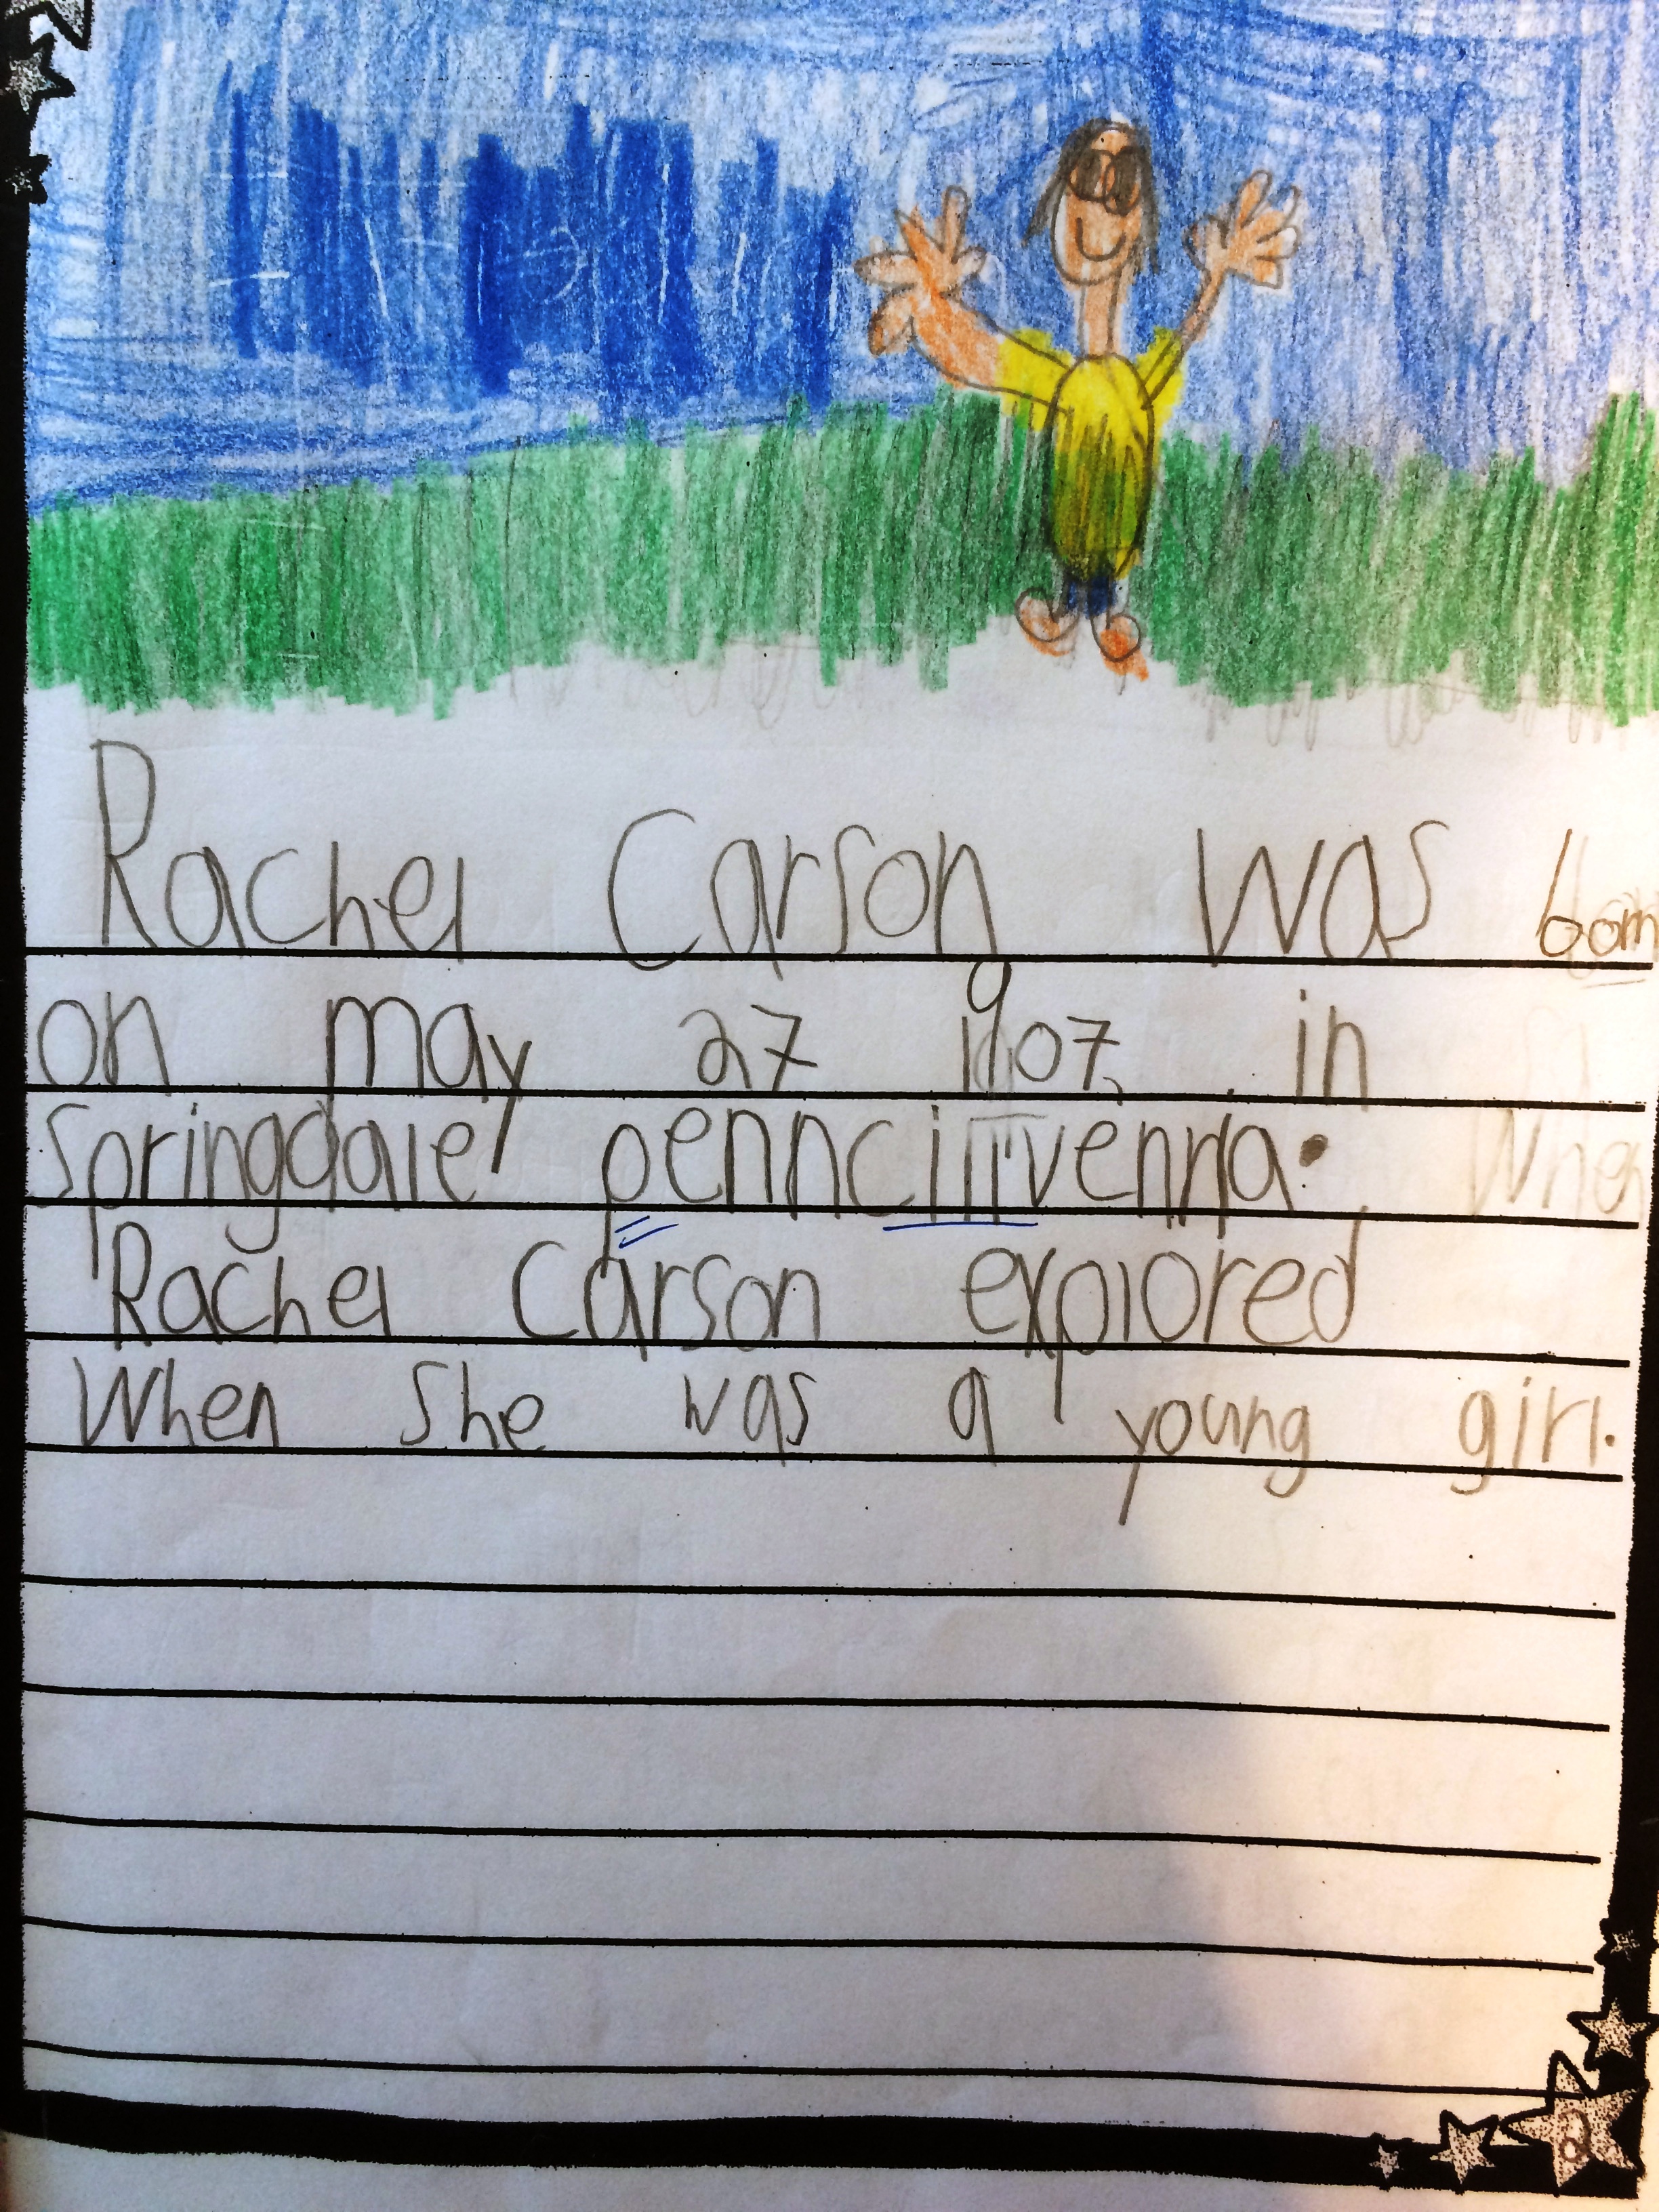 Rachel Carson was born
on may 27 1907, in
springdale, penncillvenna.
Rachel Carson explored
When She was a young girl.
2